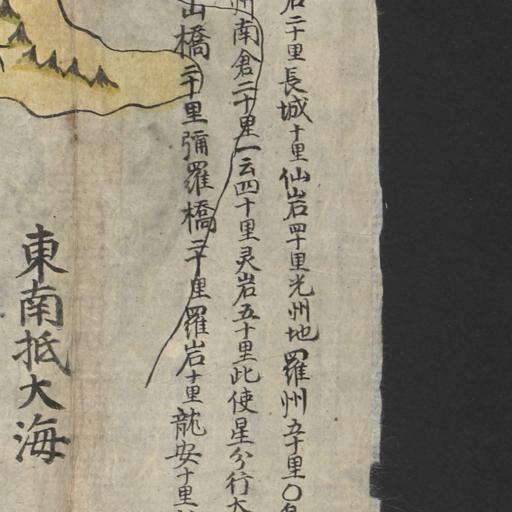 岩二十里長城十里仙岩四十里光州地羅州五十里〇
州南倉二十里一云四十里灵岩五十里此使星分行大
橋二十里彌羅橋二十里羅岩十里龍安十里
東南抵大海